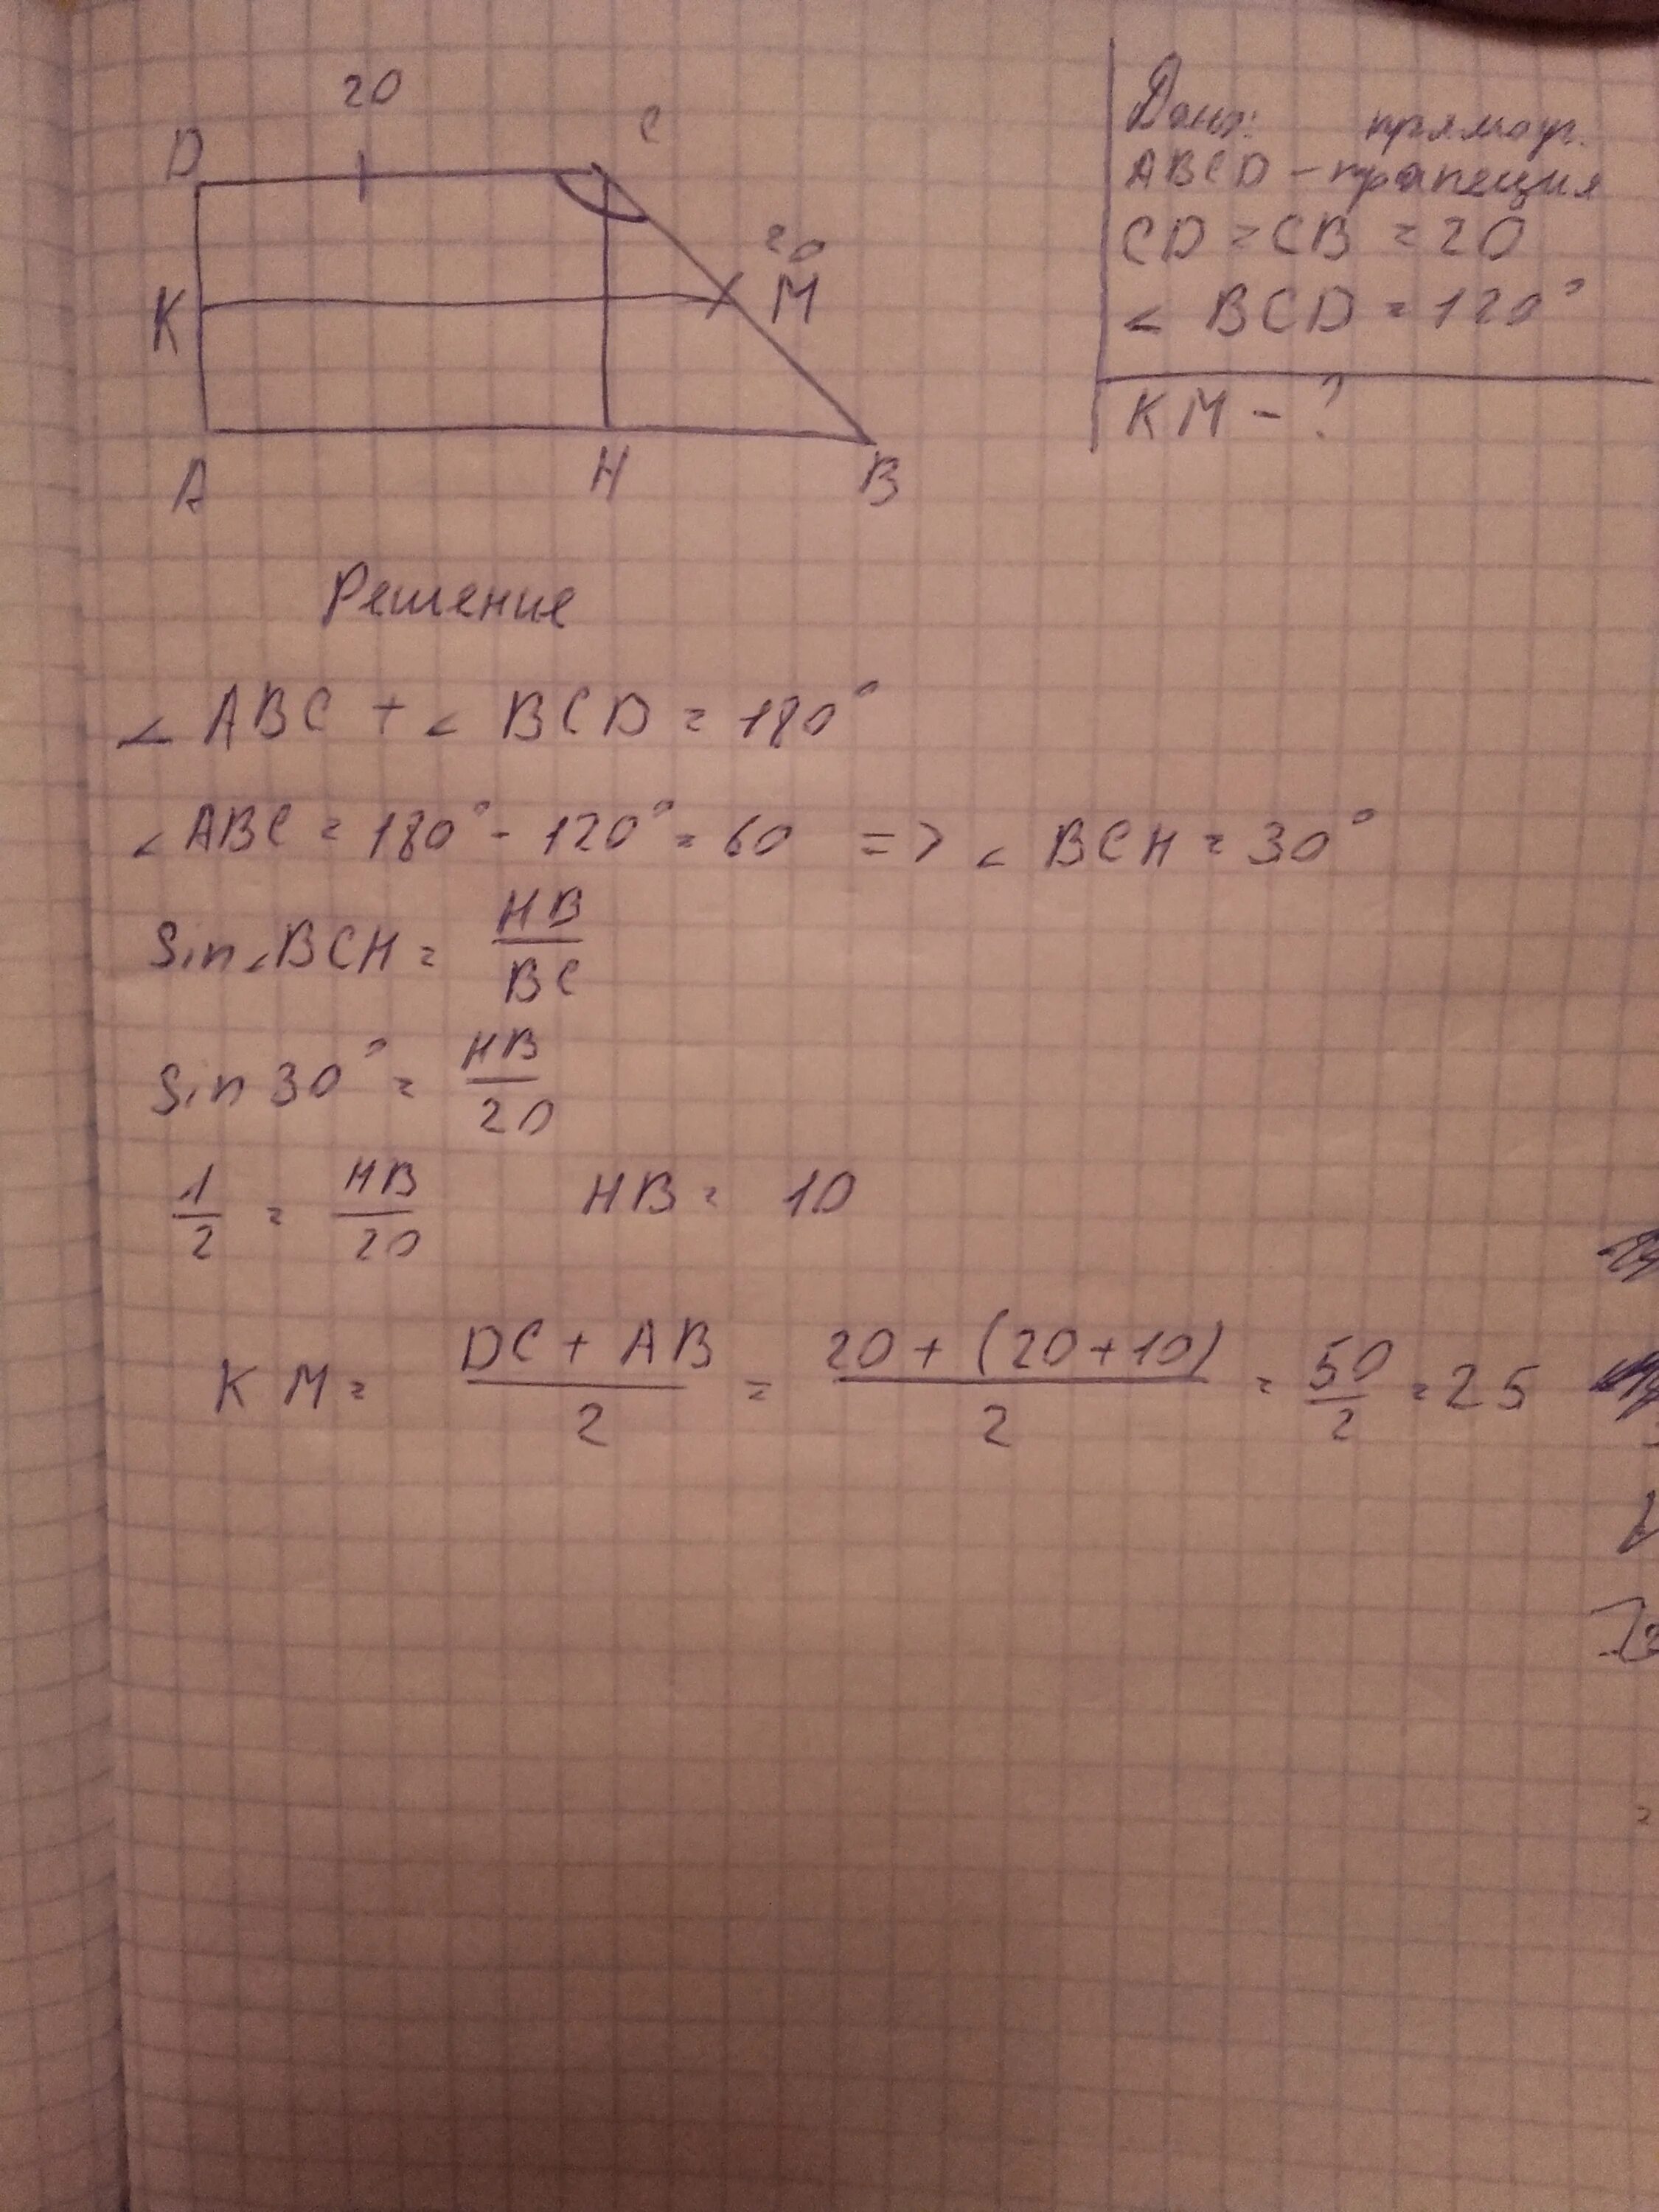 20
D
C
20
K
M
A
H
B
Дано: прямоуг.
ABCD - трапеция
CD = CB = 20
∠ BCD = 120°
KM - ?
Решение
∠ ABC + ∠ BCD = 180°
∠ ABC = 180° - 120° = 60 => ∠ BCH = 30°
Sin∠BCH = HB/BC
Sin 30° = HB/20
1/2 = HB/20 HB = 10
KM = DC + AB / 2 = 20 + (20+10) / 2 = 50/2 = 25